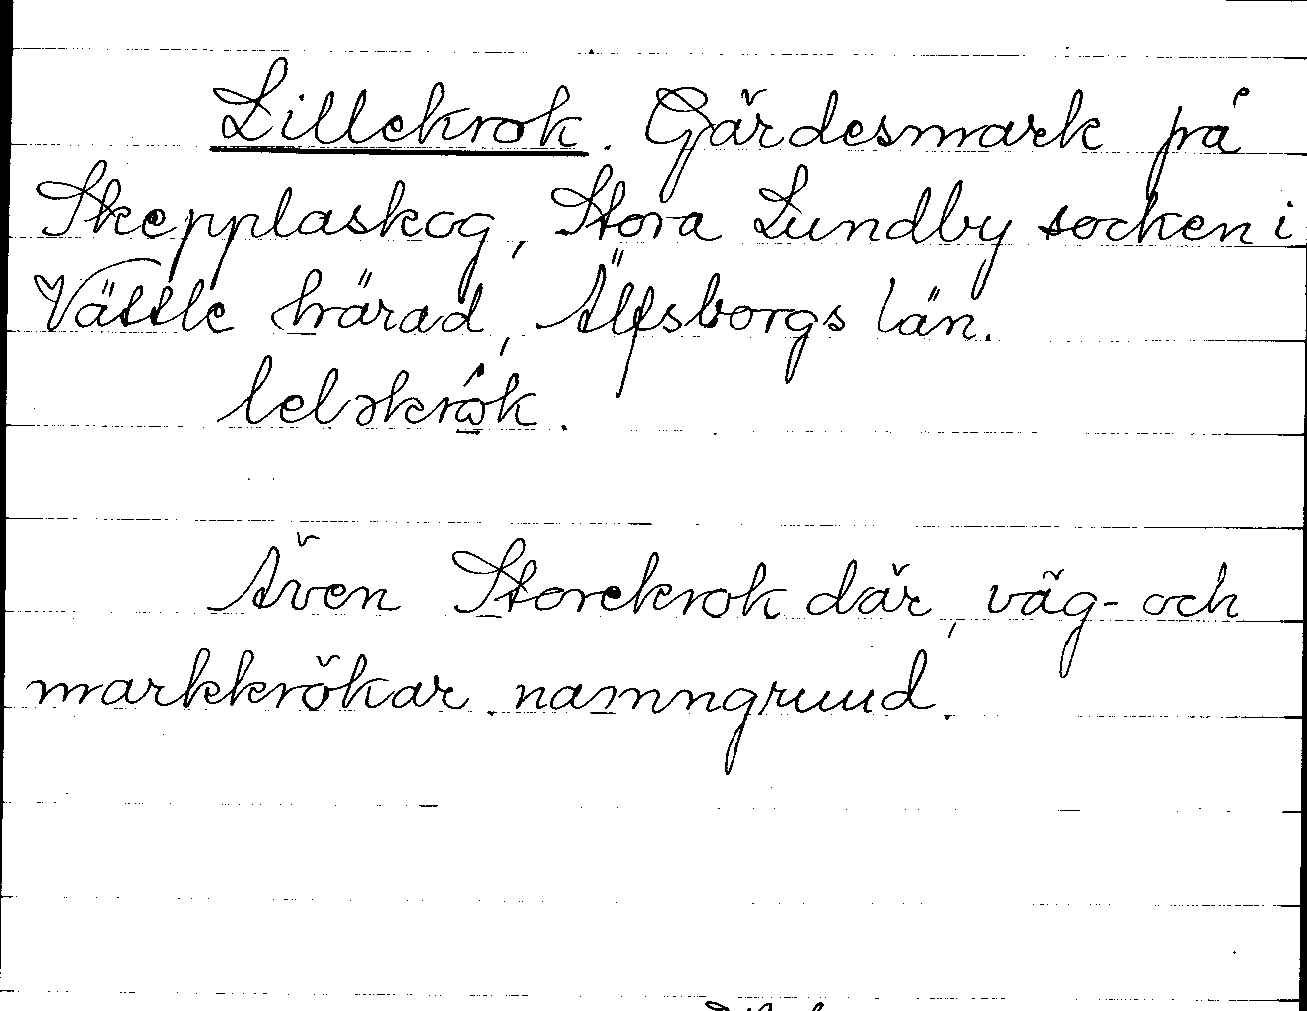 Lillekrok. Gärdesmark på
Skepplaskog, Stora Lundby socken i
Vättle härad, Älfsborgs län.
Även Storekrok där, väg- och
markkrökar namngrund.